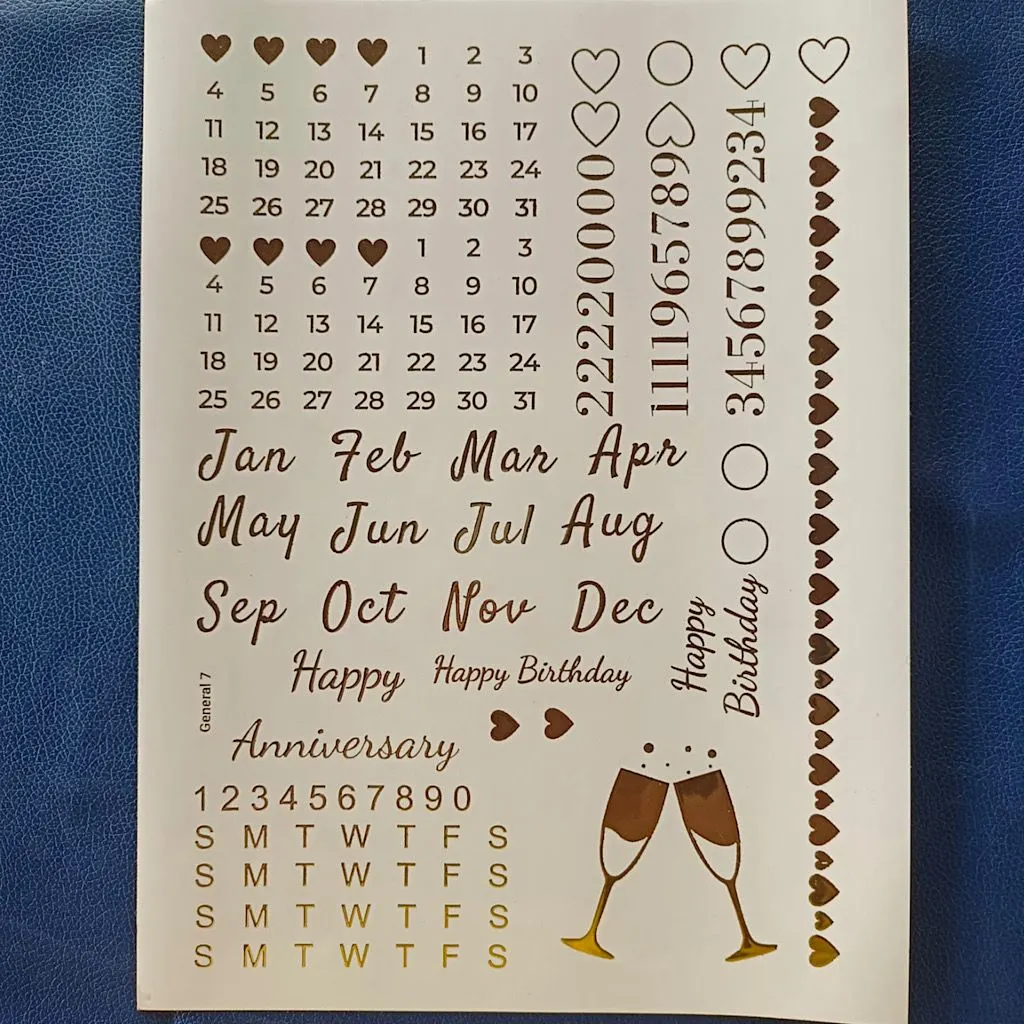 1 2 3
4 5 6 7 8 9 10
11 12 13 14 15 16 17
18 19 20 21 22 23 24
25 26 27 28 29 30 31
1 2 3
4 5 6 7 8 9 10
11 12 13 14 15 16 17
18 19 20 21 22 23 24
25 26 27 28 29 30 31
222200000
1111965789
345678999234
Jan Feb Mar Apr
May Jun Jul Aug
Sep Oct Nov Dec
Happy
Happy Birthday
Happy
Birthday
General 7
Anniversary
1 2 3 4 5 6 7 8 9 0
S M T W T F S
S M T W T F S
S M T W T F S
S M T W T F S